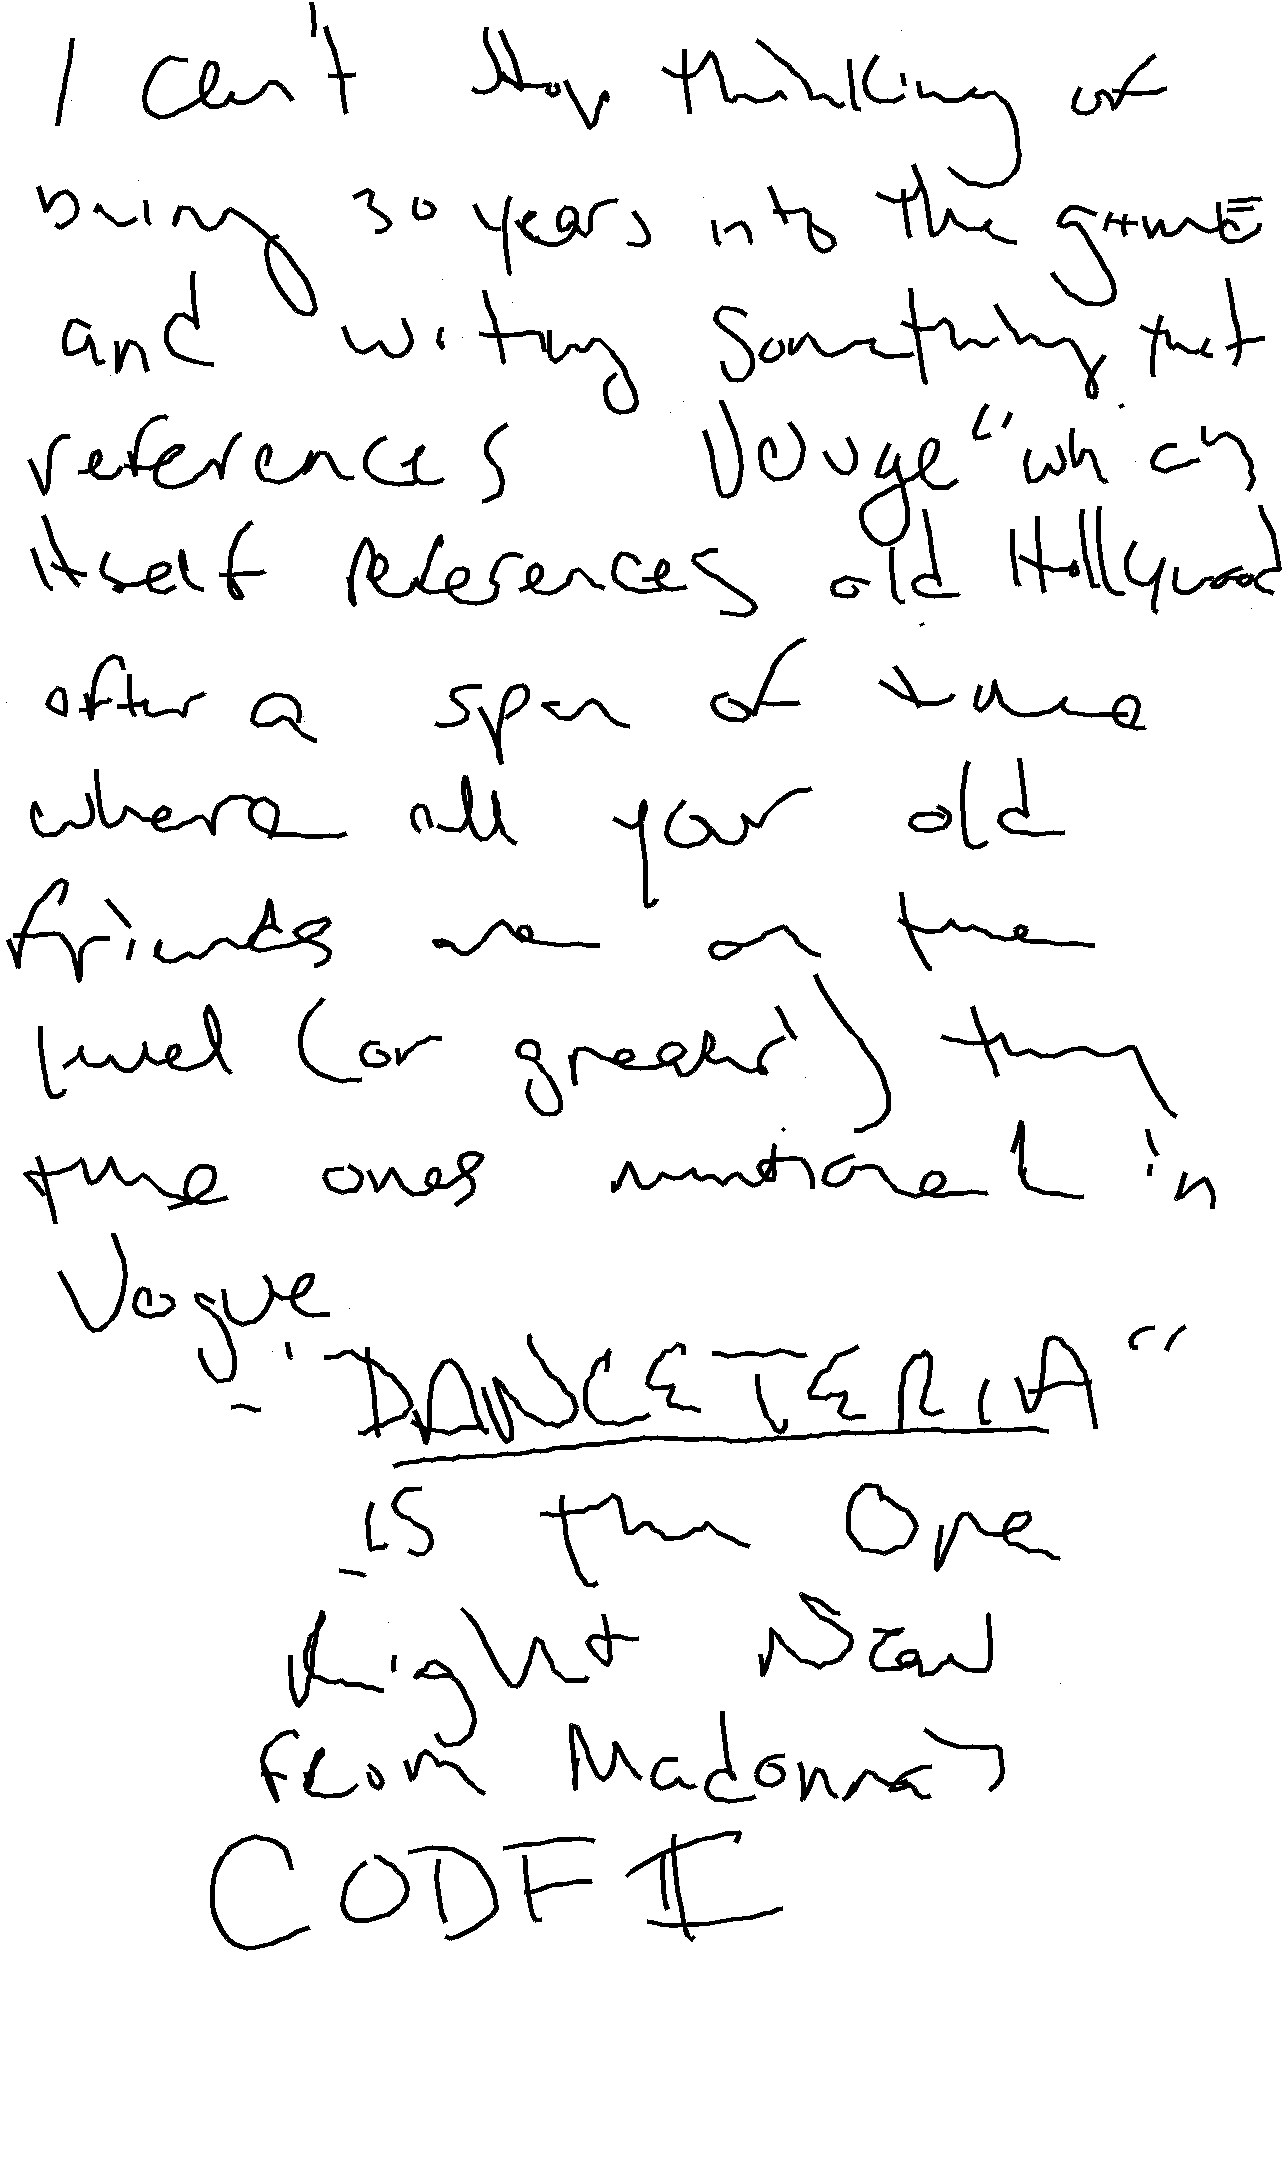 I can't stop thinking of
being 30 years into the game
and writing something that
references Vouge" which
itself references old Hollywood
after a span of time
where all your old
friends are on the
level (or greater) than
the ones mentioned in
Vogue
"DANCETERIA"
is the One
Right Now
from Madonna's
CODF II